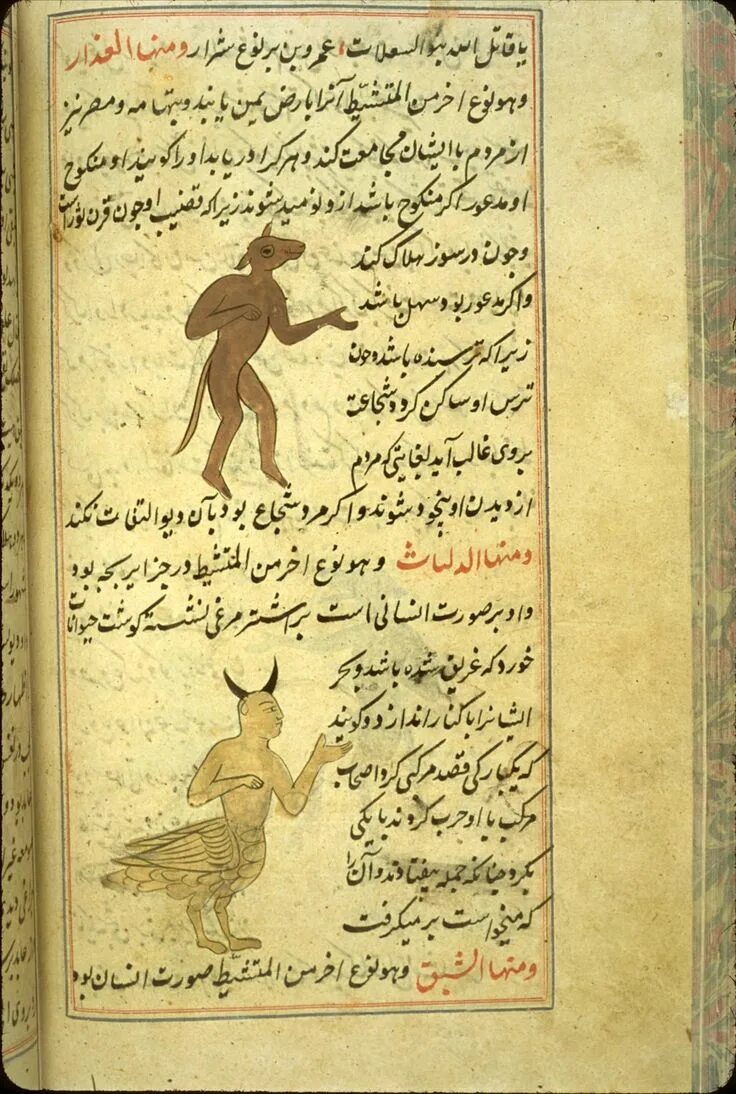 یا قاتل الله بنو السعلات، عمرو بن یربوع شرار ومنها العذار
وهو نوع اخر من المتشیط آنرا بارض یمن یابند وبتهامه ومصر نیز
از مردم با ایشان مجامعت کند وهر کرا دریابد او را کویند او منکوح
او مدعور اکر منکوح باشد از و نومید شوند زیرا که قضیب او جون قرن ثور است
وجون درسوزد هلاک کند
واکر مدعور بود سهل باشد
زیرا که ترسنده باشد وجون
ترس او ساکن کردد شجاعت
بروی غالب آید بغایتی که مردم
از دیدن او بیخود شوند واکر مرد شجاع بود بآن دیو التفات نکند
ومنها الدلهاث وهو نوع اخر من المتشیط در جزایر بحر بود
واو بر صورت انسانی است بر اشتر مرغی نشسته کوشت حیوانات
خورد که غریق شده باشد وبحر
ایشانرا با کنار اندازد وکویند
که یکبار کی قصد مرکبی کرد اصحاب
مرکب با او حرب کردند بانکی
بکرد چنانکه جمله بیفتادند وآن را
که میخواست بر میکرفت
ومنها الشق وهو نوع اخر من المتشیط صورت انسان بود